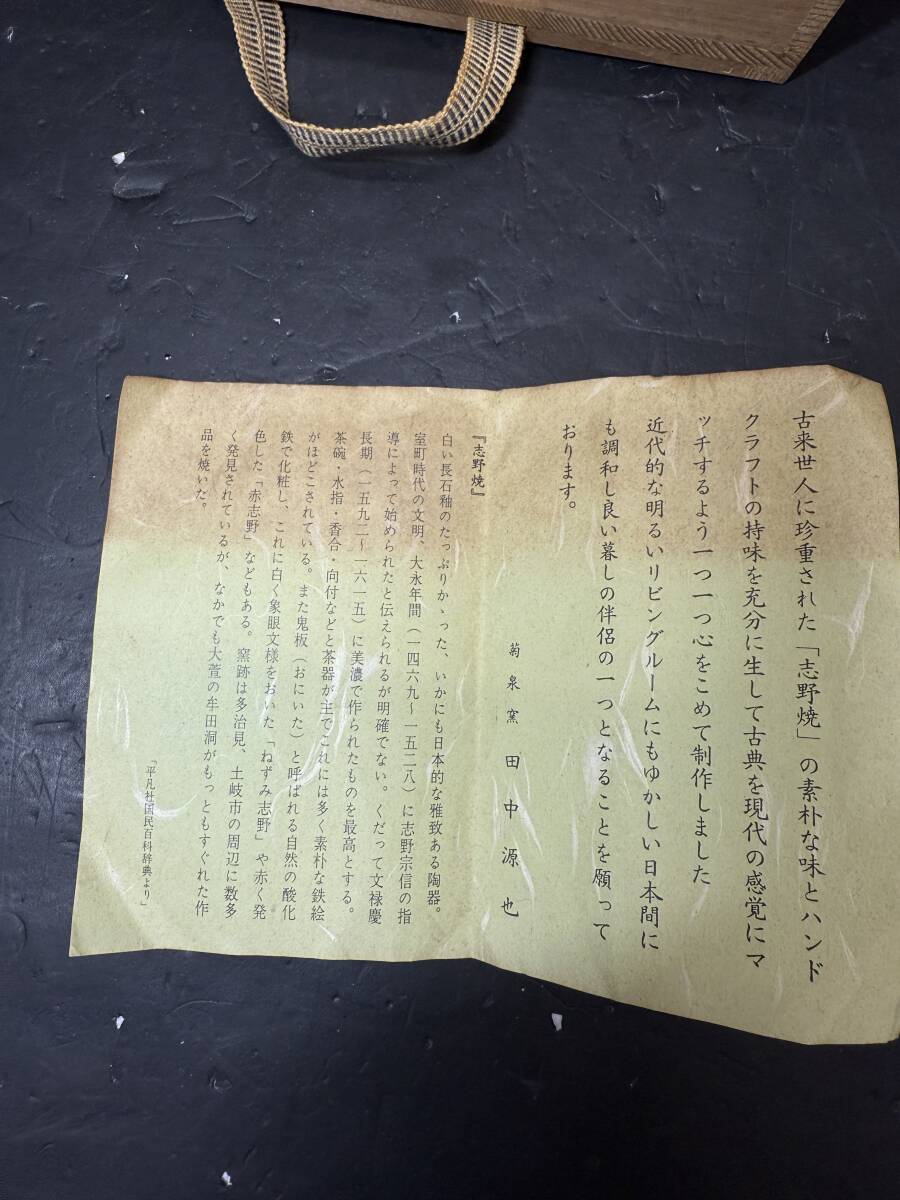 古来世人に珍重された「志野焼」の素朴な味とハンド
クラフトの持味を充分に生して古典を現代の感覚にマ
ッチするよう一つ一つ心をこめて制作しました
近代的な明るいリビングルームにもゆかしい日本間に
も調和し良い暮しの伴侶の一つとなることを願って
おります。
菊泉窯 田中源也
『志野焼』
白い長石釉のたっぷりかゝった、いかにも日本的な雅致ある陶器。
室町時代の文明、大永年間（一四六九〜一五二八）に志野宗信の指
導によって始められたと伝えられるが明確でない。くだって文禄慶
長期（一五九二〜一六一五）に美濃で作られたものを最高とする。
茶碗・水指・香合・向付などと茶器が主でこれには多く素朴な鉄絵
がほどこされている。また鬼板（おにいた）と呼ばれる自然の酸化
鉄で化粧し、これに白く象眼文様をおいた「ねずみ志野」や赤く発
色した「赤志野」などもある。窯跡は多治見、土岐市の周辺に数多
く発見されているが、なかでも大萱の牟田洞がもっともすぐれた作
品を焼いた。
「平凡社国民百科辞典より」